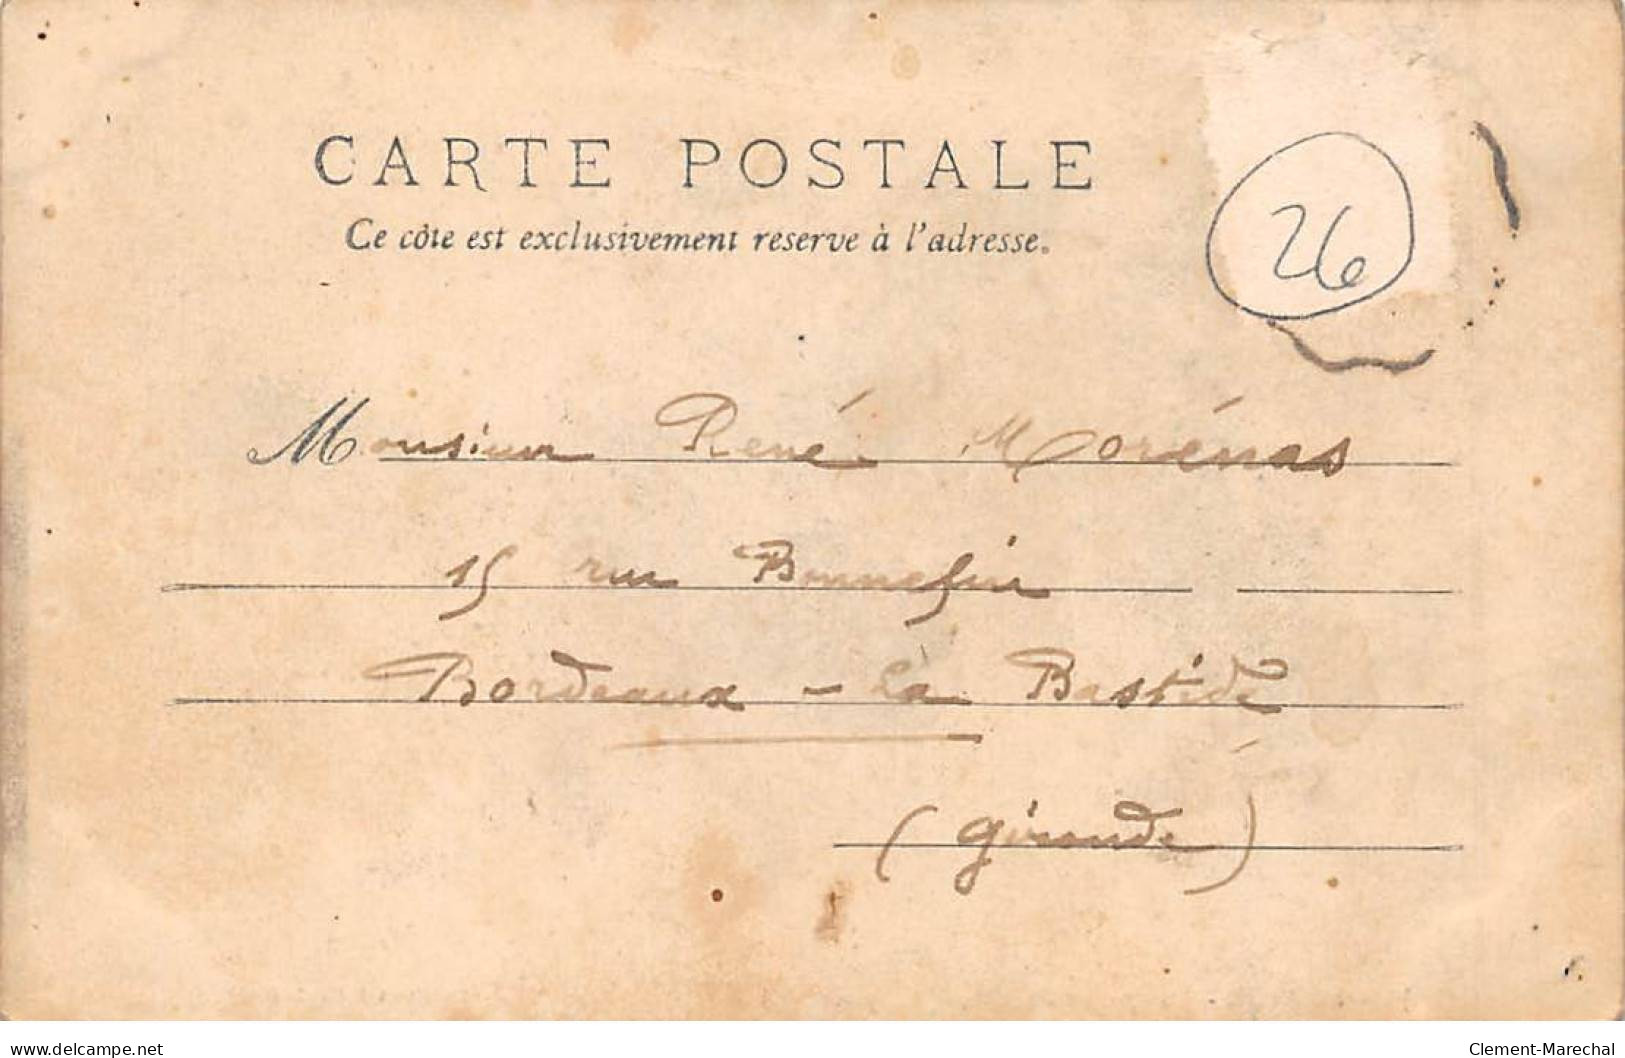 CARTE POSTALE
Ce côte est exclusivement reserve à l'adresse.
26
Monsieur René Morénas
15 rue Bonnefin
Bordeaux - La Bastide
(Gironde)
www.delcampe.net
Clement-Marechal